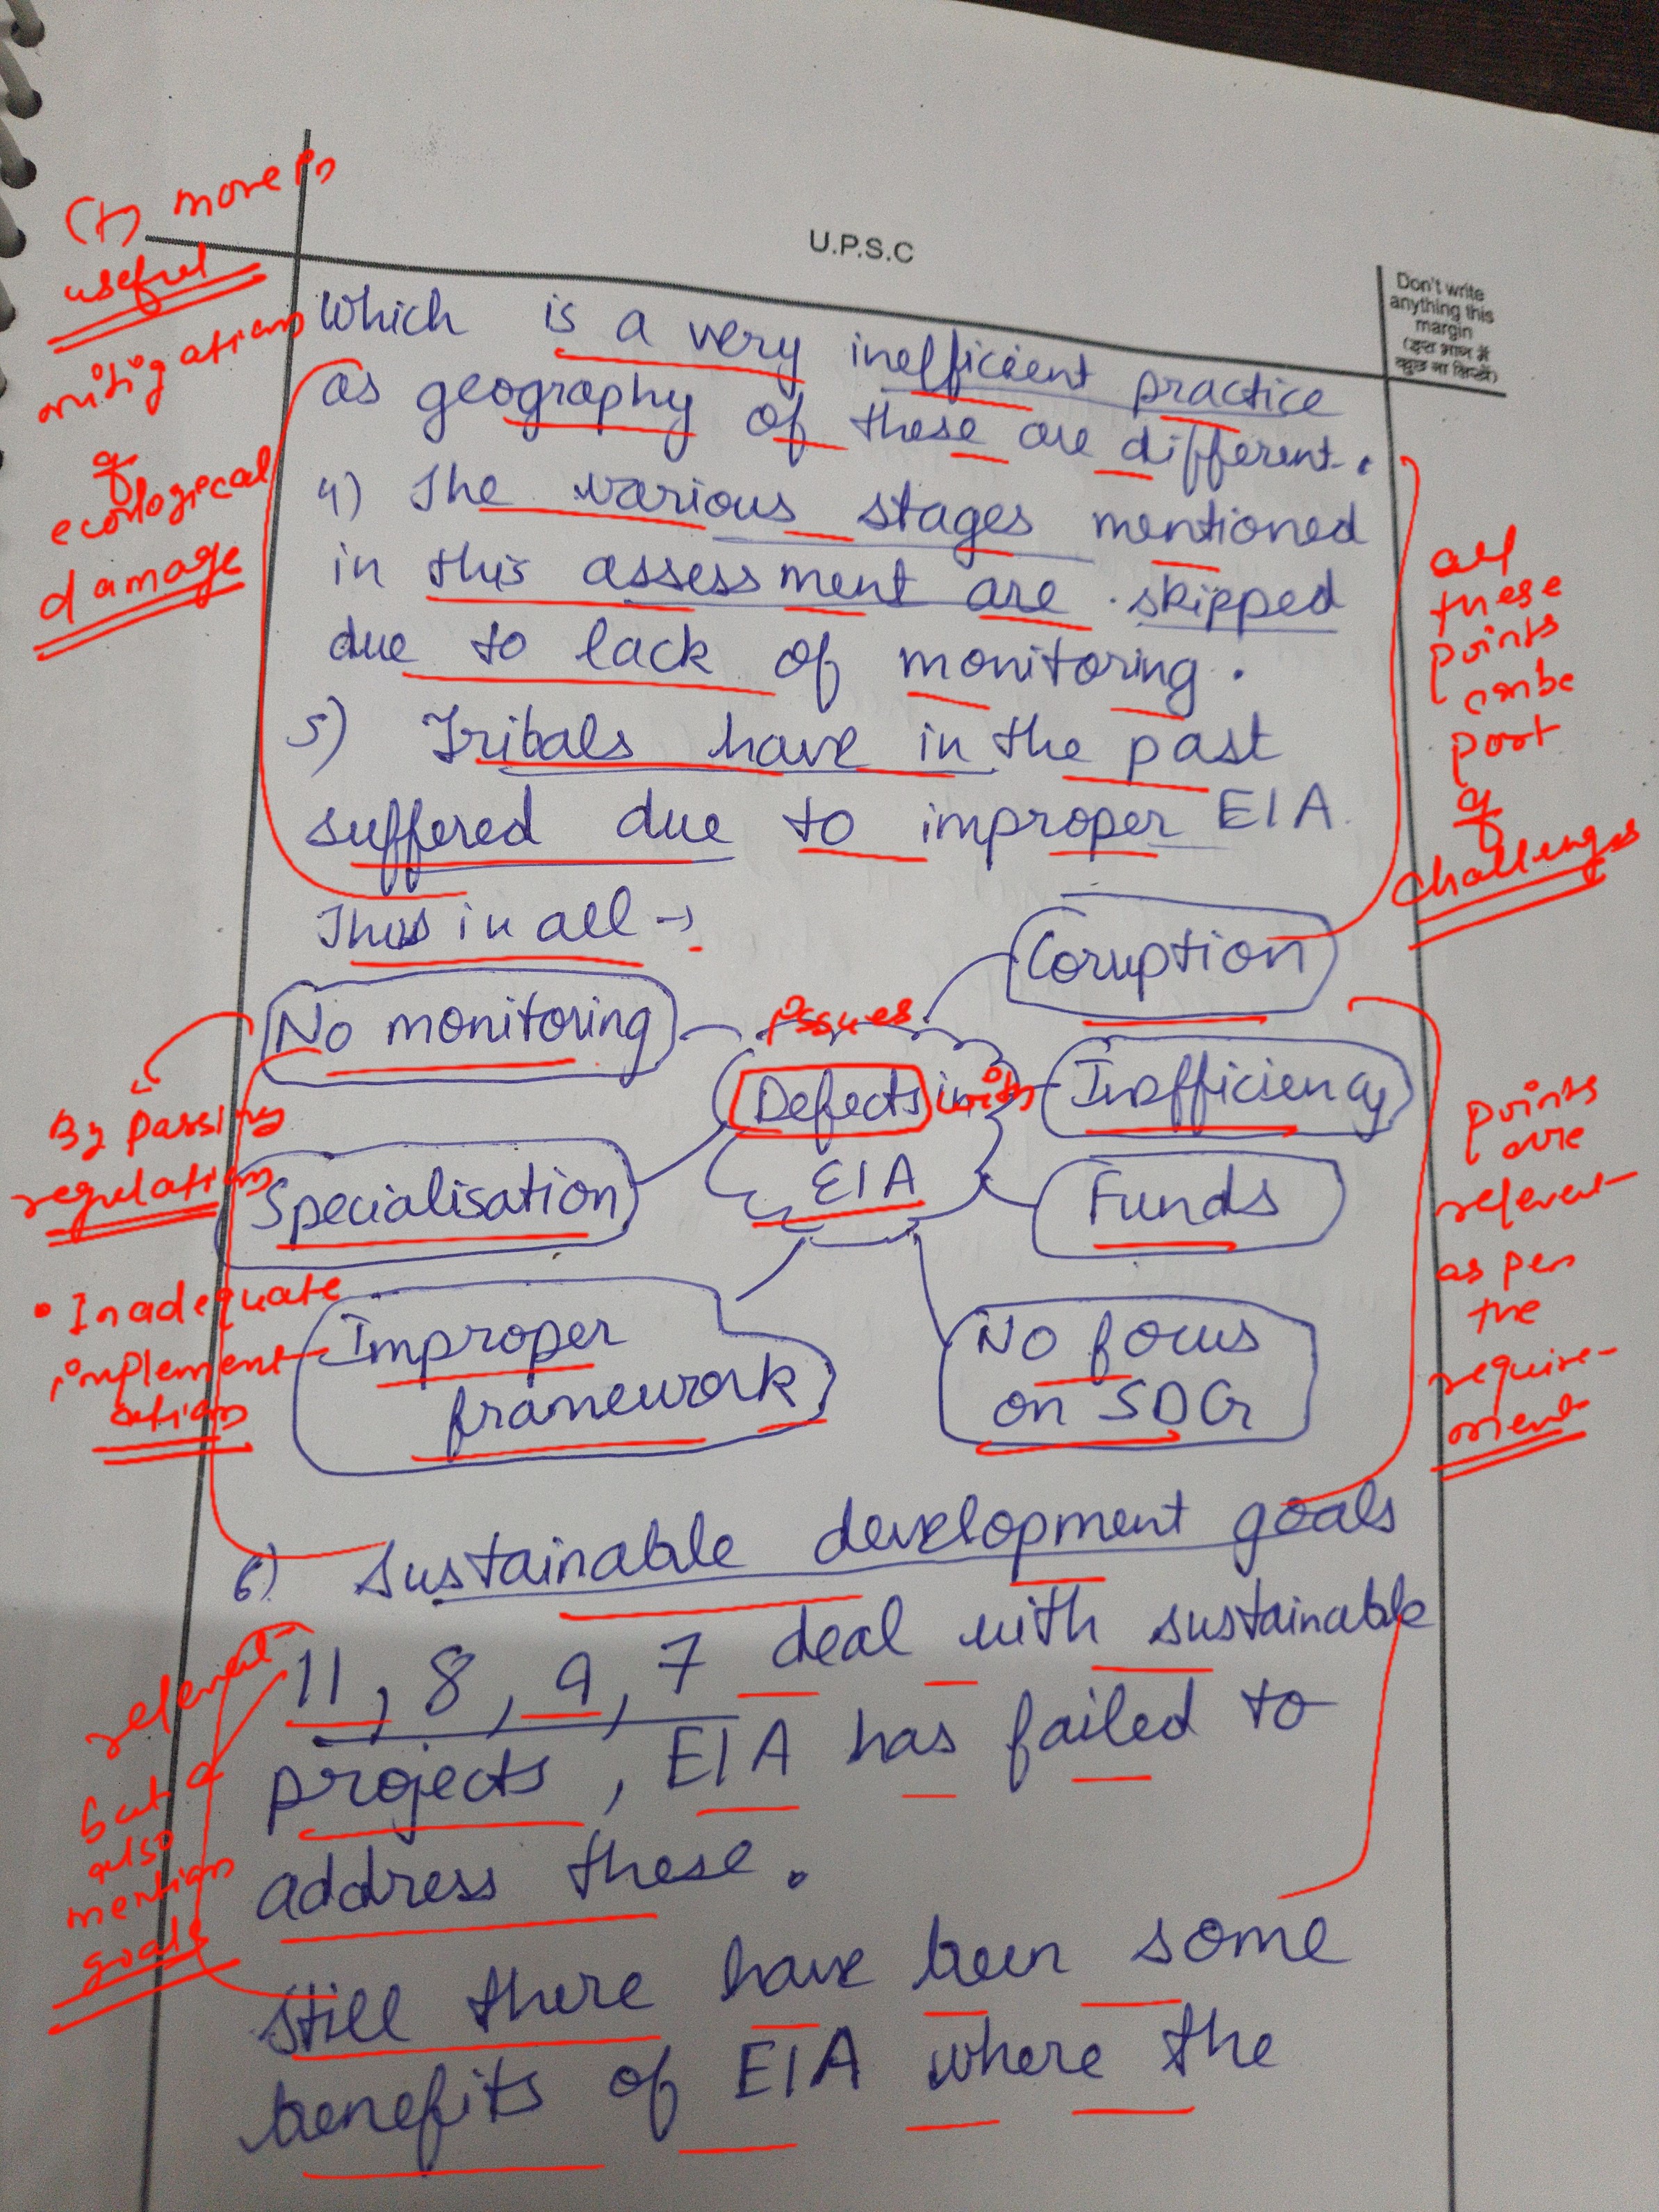 U.P.S.C
Don't write
anything this
margin
(इस भाग में
कुछ ना लिखें)
(+) more is
useful
mitigation
of
ecological
damage
Which is a very inefficient practice
as geography of these are different.
4) The various stages mentioned
in this assessment are skipped
due to lack of monitoring.
5) Tribals have in the past
suffered due to improper EIA.
Thus in all →
all
these
points
can be
part
of
challenges
No monitoring
Coruption
Issues
Defects in
with
EIA
Inefficiency
Specialisation
Funds
Improper
framework
No focus
on SDG
By passing
regulation
• Inadequate
implement-
ation
points
are
relevent
as per
the
require-
ment
6) Sustainable development goals
11, 8, 9, 7 deal with sustainable
projects, EIA has failed to
address these.
Still there have been some
benefits of EIA where the
relevent
but
also
mention
goals